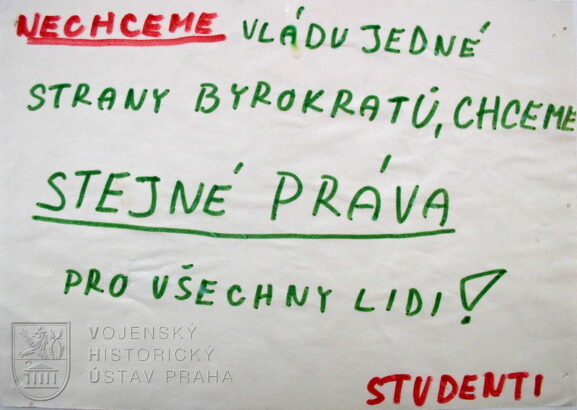 NECHCEME VLÁDU JEDNÉ
STRANY BYROKRATŮ, CHCEME
STEJNÉ PRÁVA
PRO VŠECHNY LIDI!
VOJENSKÝ
HISTORICKÝ
ÚSTAV PRAHA
STUDENTI